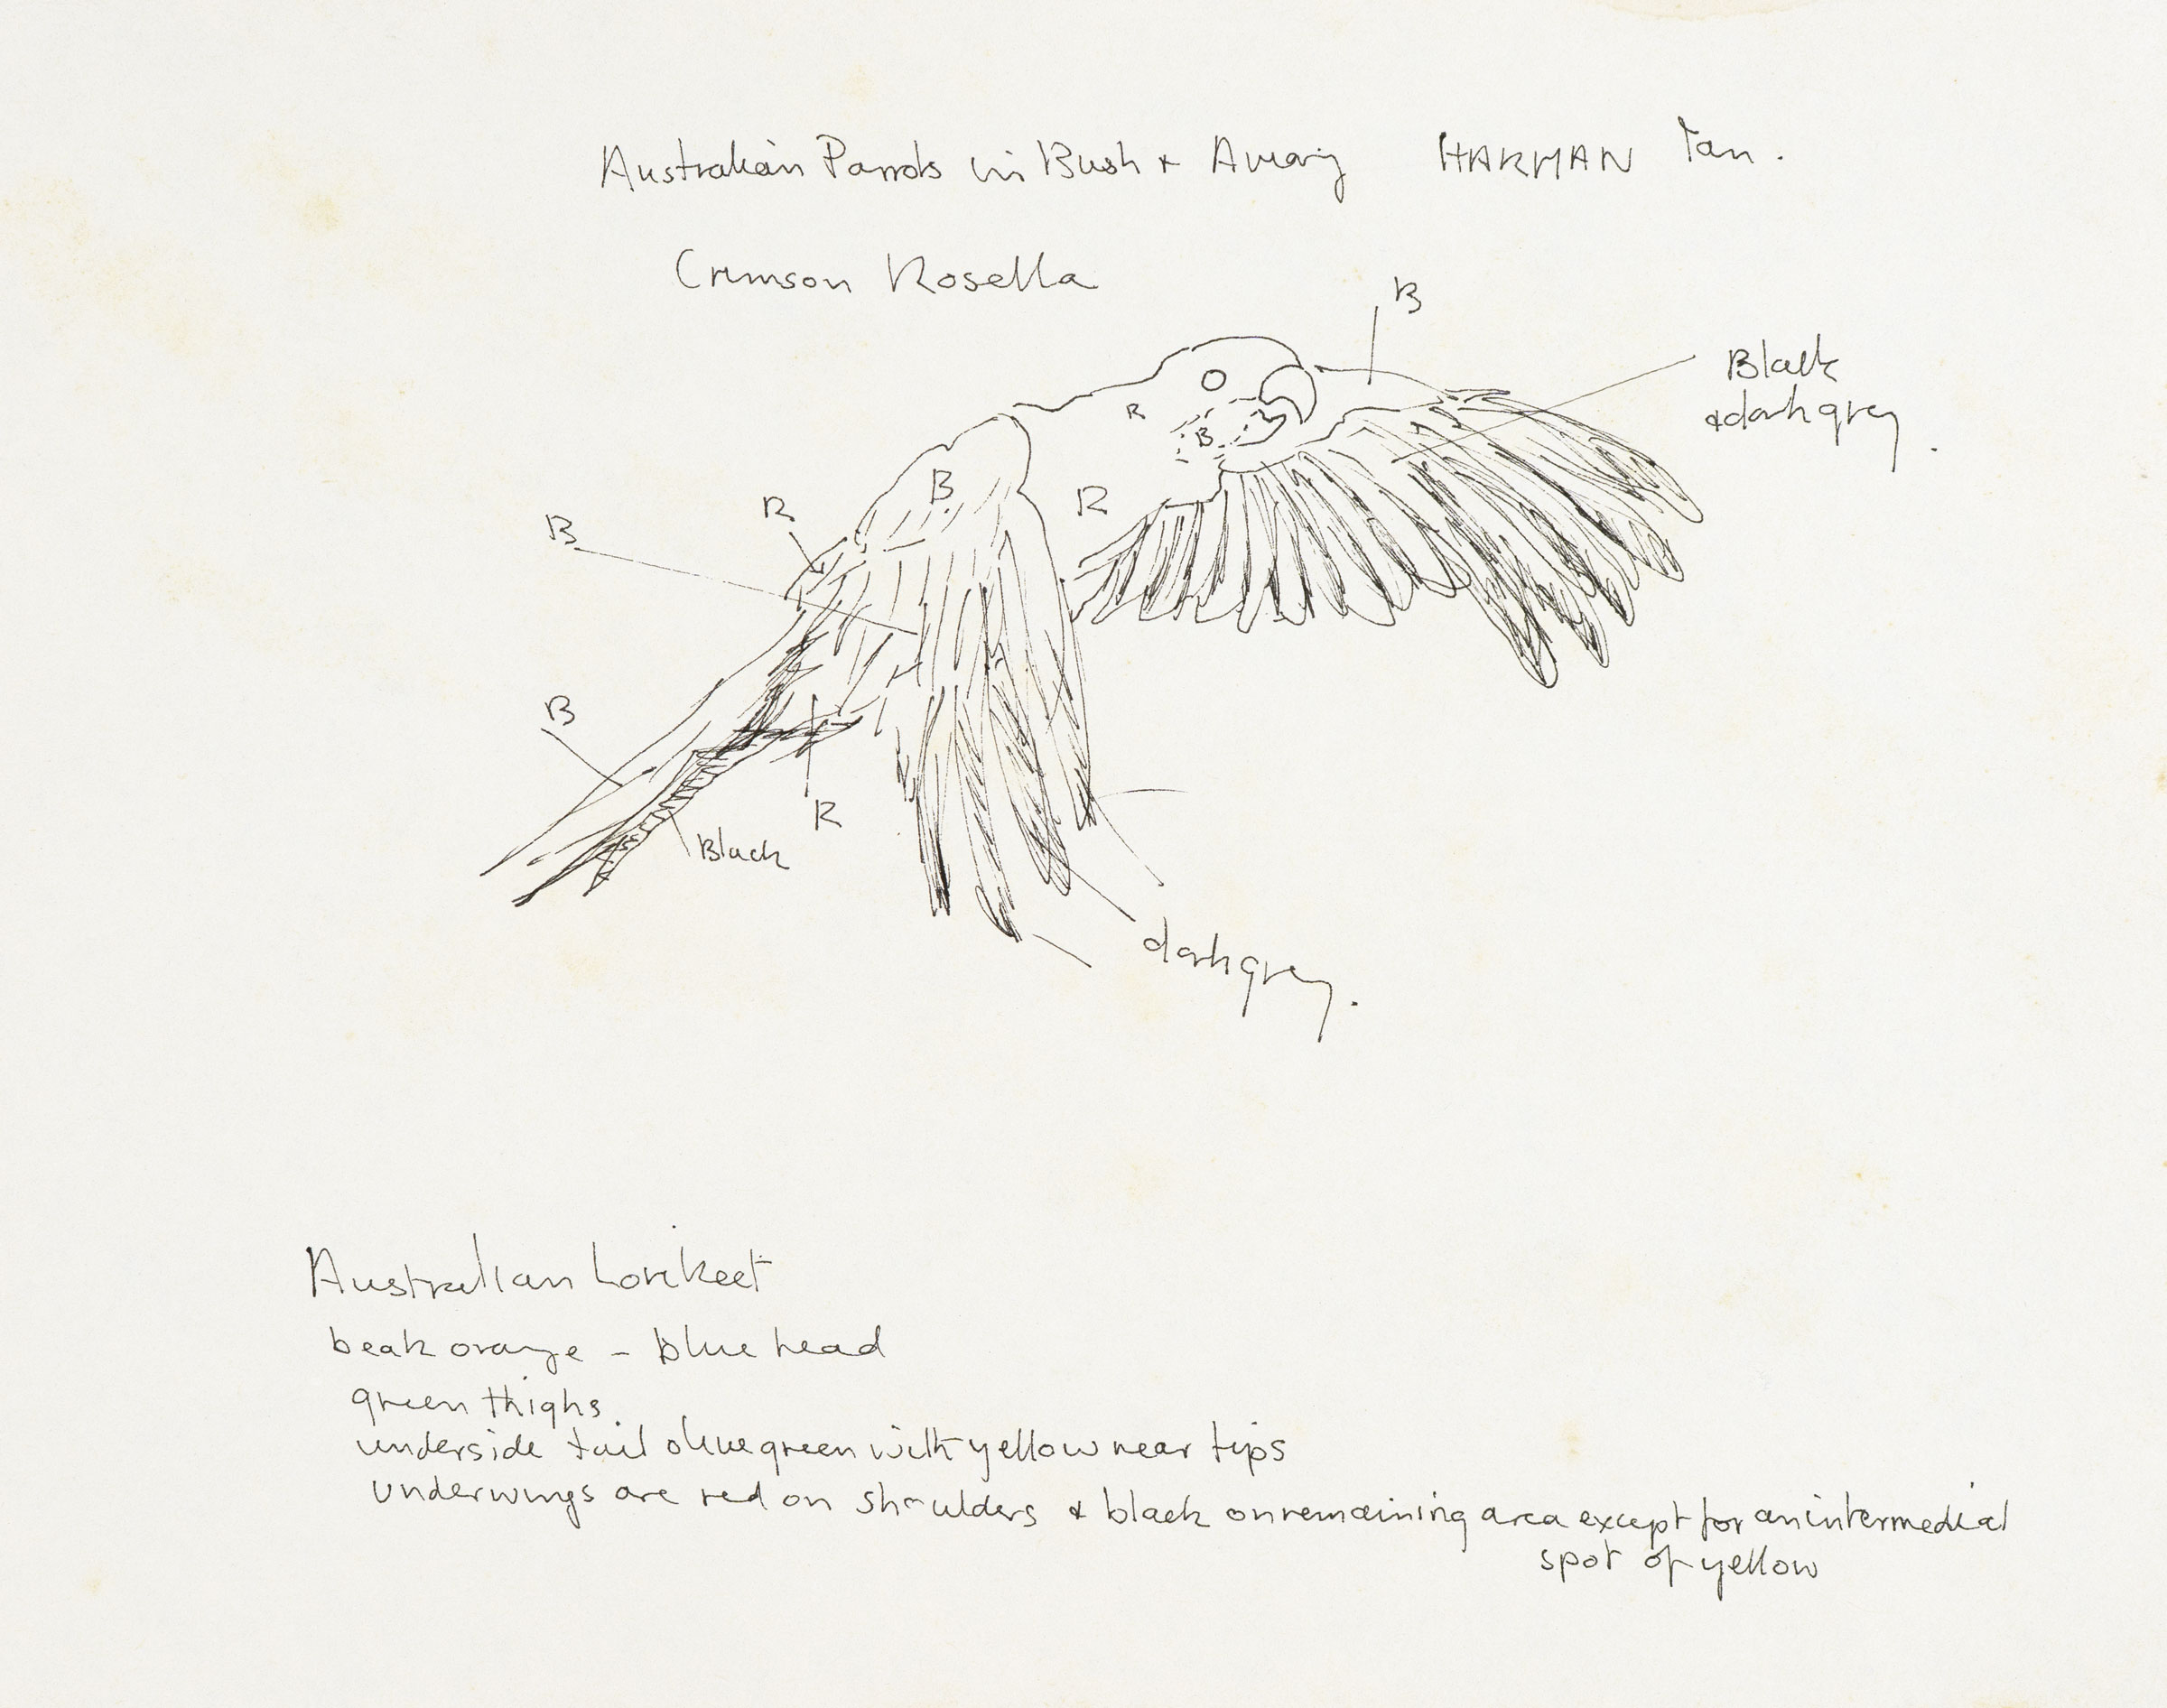 Australian Parrots in Bush & Aviary HARMAN Ian.
Crimson Rosella
B
Black
& dark grey.
R
B
B
R
R
B
B
R
Black
dark grey.
Australian Lorikeet
beak orange - blue head
green thighs.
underside tail olive green with yellow near tips
underwings are red on shoulders & black on remaining area except for an intermedial
spot of yellow